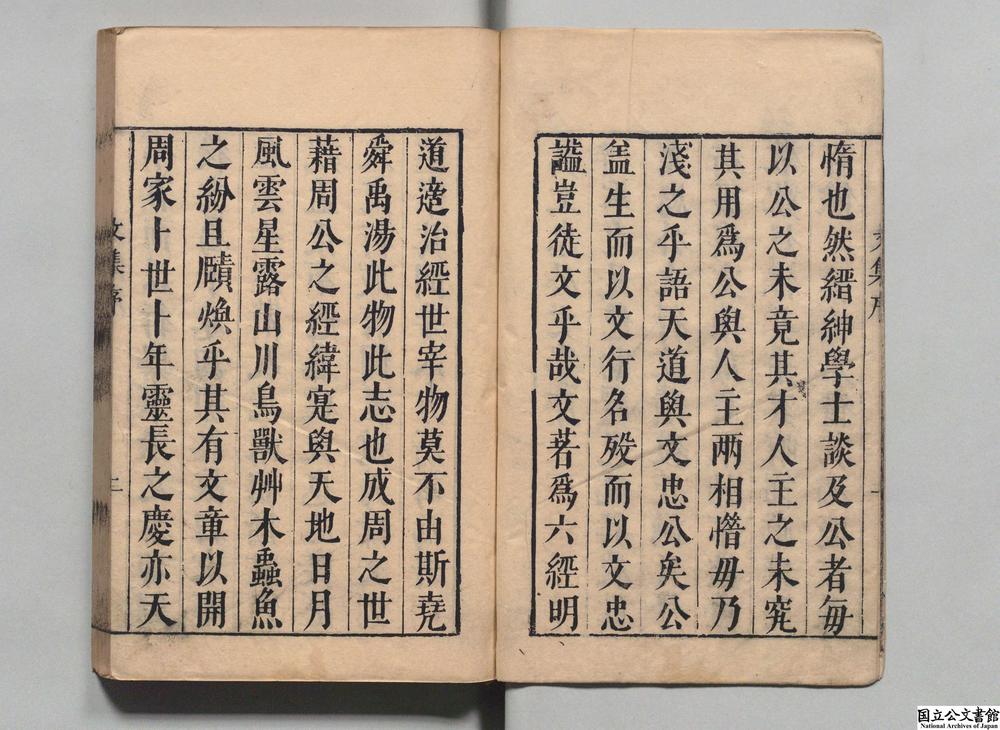 惰也然縉紳學士談及公者每
以公之未竟其才人主之未究
其用爲公與人主兩相惜毋乃
淺之乎語天道與文忠公矣公
盖生而以文行名殁而以文忠
謚豈徒文乎哉文若爲六經明
文集序
一
道達治經世宰物莫不由斯堯
舜禹湯此物此志也成周之世
藉周公之經緯寔與天地日月
風雲星露山川鳥獸艸木蟲魚
之紛且賾煥乎其有文章以開
周家卜世卜年靈長之慶亦天
文集序
二
国立公文書館
National Archives of Japan